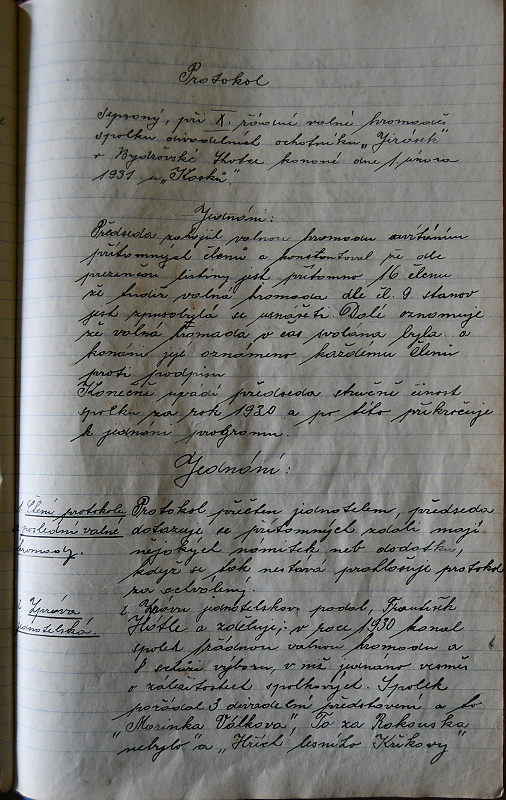 Protokol
sepsaný, při X. řádné valné hromadě,
spolku divadelních ochotníků „Jirásek"
v Bydžovské Lhotce konané dne 1. února
1931 u „Kosků".
Jednání:
Předseda zahájil valnou hromadu uvítáním
přítomných členů a konstantoval že dle
presenční listiny jest přítomno 16 členů
že tudíž valná hromada dle čl. 9 stanov
jest způsobilá se usnášeti. Dále oznamuje
že valná hromada v čas svolána byla a
konání její oznámeno každému členu
proti podpisu
Konečně uvádí předseda stručně činost
spolku za rok 1930 a po této přikročuje
k jednání programu.
Jednání:
1 Čtení protokolu Protokol přečten jednatelem, předseda
z poslední valné dotazuje se přítomných zdali mají
hromady. nějakých námitek neb dodatků,
když se tak nestává prohlašuje protokol
za schválený.
2 Zpráva 2. Zprávu jednatelskou podal, František
jednatelská. Hotle a zděluje: v roce 1930 konal
spolek 1 řádnou valnou hromadu a
8 schůzí výboru, v niž jednáno vesměs
o záležitostech spolkových. Spolek
pořádal 3 divadelní představení a to
„Marinka Válkova", To za Rakouska
nebylo" a „Hřích lesního Křikavy"